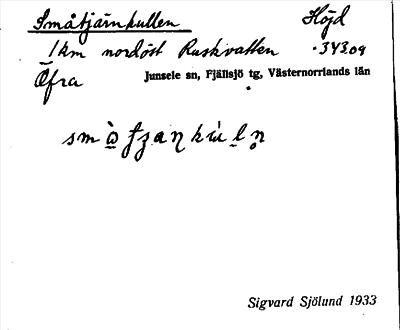 Småtjärnkullen Höjd
1 km nordöst Ruskvatten · 343,09
Öfra Junsele sn, Fjällsjö tg, Västernorrlands län
Sigvard Sjölund 1933